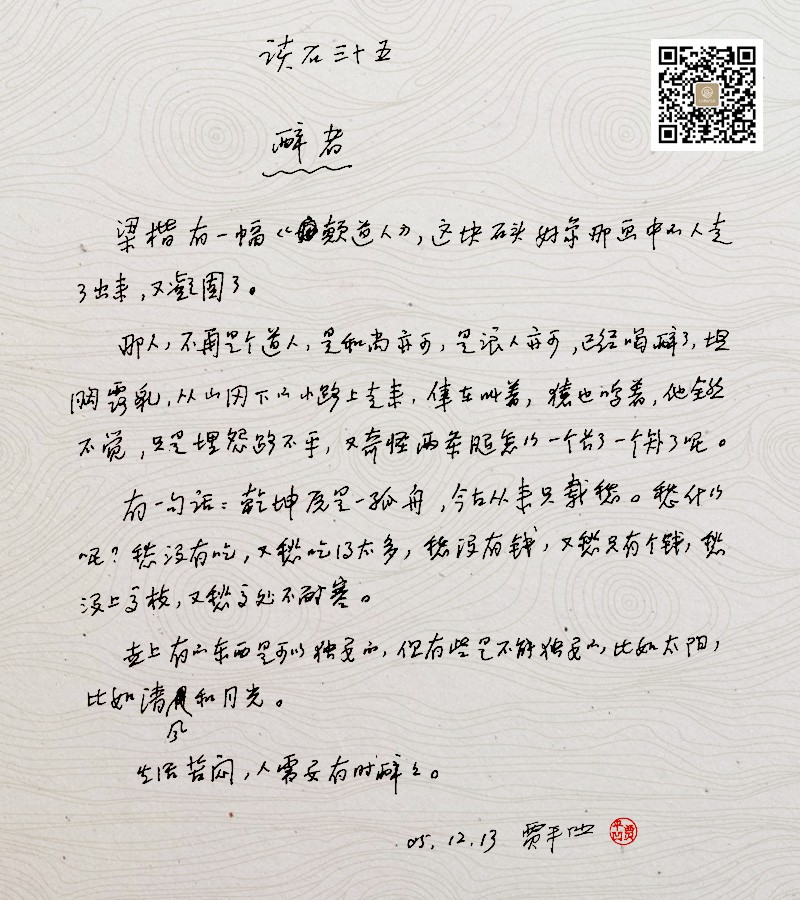 读石三十五
醉者
梁楷有一幅《颠道人》,这块石头好象那画中的人走
了出来,又凝固了。
那人,不再是个道人,是和尚亦可,是浪人亦可,已经喝醉了,坦
胸露乳,从山冈下的小路上走来,隼在叫着,猿也啼着,他全然
不觉,只是埋怨路不平,又奇怪两条腿怎的一个长了一个短了呢。
有一句话:乾坤原是一孤舟,今古从来只载愁。愁什的
呢?愁没有吃,又愁吃得太多,愁没有钱,又愁只有个钱,愁
没上高枝,又愁高处不耐寒。
世上有的东西是可以独尊的,但有些是不能独尊的,比如太阳,
比如清风和月光。
生活苦闷,人需要有时醉之。
05.12.13 贾平凹
贾平凹